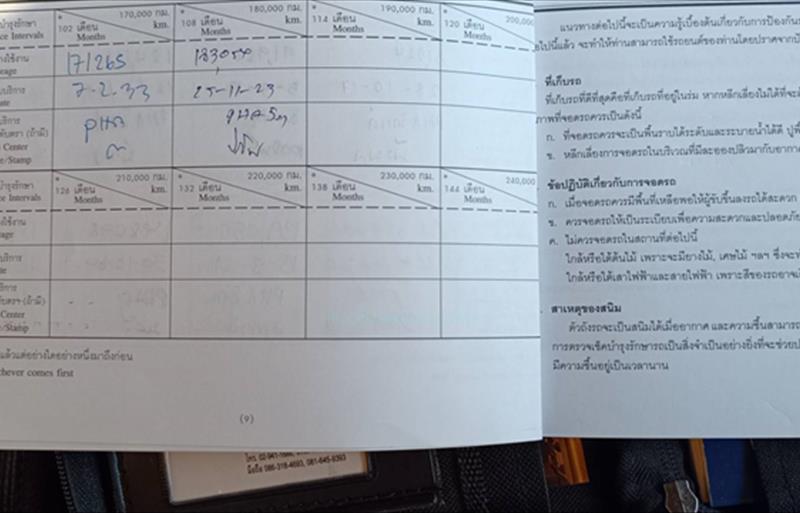 บำรุงรักษา 102 เดือน 170,000 กม. 108 เดือน 180,000 กม. 114 เดือน 190,000 กม. 120 เดือน 200,000
ce Intervals Months km. Months km. Months km. Months
างใช้งาน 171265
eage
บริการ 7-2-33 25-11-23
ate
บริการ
Center
e/Stamp
บำรุงรักษา 126 เดือน 210,000 กม. 132 เดือน 220,000 กม. 138 เดือน 230,000 กม. 144 เดือน 240,000
ce Intervals Months km. Months km. Months km. Months
างใช้งาน
eage
บริการ
ate
บริการ
Center
e/Stamp
แล้วแต่อย่างใดอย่างหนึ่งมาถึงก่อน
chever comes first
(9)
แนวทางต่อไปนี้จะเป็นความรู้เบื้องต้นเกี่ยวกับการป้องกัน
ไปนี้แล้ว จะทำให้ท่านสามารถใช้รถยนต์ของท่านโดยปราศจาก
ที่เก็บรถ
ที่เก็บรถที่ดีที่สุดคือที่เก็บรถที่อยู่ในร่ม หากหลีกเลี่ยงไม่ได้ที่จะ
ภาพที่จอดรถควรเป็นดังนี้
ก. ที่จอดรถควรจะเป็นพื้นราบได้ระดับและระบายน้ำได้ดี
ข. หลีกเลี่ยงการจอดรถในบริเวณที่มีละอองปลิวมากับอากาศ
ข้อปฏิบัติเกี่ยวกับการจอดรถ
ก. เมื่อจอดรถควรมีพื้นที่เหลือพอให้ผู้ขับขึ้นลงรถได้สะดวก
ข. ควรจอดรถให้เป็นระเบียบเพื่อความสะดวกและปลอดภัย
ค. ไม่ควรจอดรถในสถานที่ต่อไปนี้
ใกล้หรือใต้ต้นไม้ เพราะจะมียางไม้, เศษไม้ ฯลฯ ซึ่งจะ
ใกล้หรือใต้เสาไฟฟ้าและสายไฟฟ้า เพราะสีของรถอาจ
สาเหตุของสนิม
ตัวถังรถจะเป็นสนิมได้เมื่ออากาศ และความชื้นสามารถ
การตรวจเช็คบำรุงรักษารถเป็นสิ่งจำเป็นอย่างยิ่งที่จะช่วย
มีความชื้นอยู่เป็นเวลานาน
มือถือ 086-318-4693, 081-645-9393